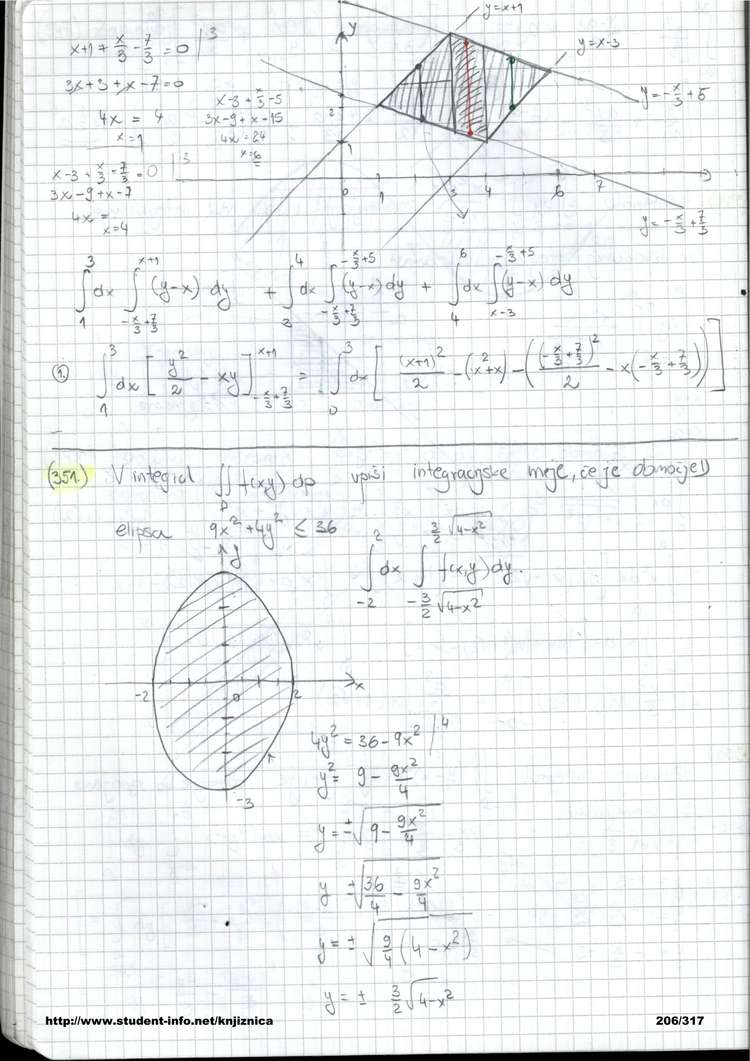 x+1+x/3-7/3=0 |3
3x+3+x-7=0
4x = 4
x=1
x-3+x/3-5
3x-9+x-15
4x=24
x=6
x-3+x/3-7/3=0 |3
3x-9+x-7
4x=
x=4
y
y=x+1
y=x-3
y=-x/3+5
y=-x/3+7/3
2
1
0 1 3 4 6 7
∫_1^3 dx ∫_{-x/3+7/3}^{x+1} (y-x) dy + ∫_3^4 dx ∫_{-x/3+7/3}^{-x/3+5} (y-x) dy + ∫_4^6 dx ∫_{x-3}^{-x/3+5} (y-x) dy
1. ∫_1^3 dx [y²/2 - xy]_{-x/3+7/3}^{x+1} = ∫_0^3 dx [(x+1)²/2 - (x²+x) - ((-x/3+7/3)²/2 - x(-x/3+7/3))]
(351.) V integral ∬_D f(xy) dp vpiši integracijske meje, če je območje D
elipsa 9x²+4y² ≤ 36
∫_{-2}^2 dx ∫_{-3/2√(4-x²)}^{3/2√(4-x²)} f(x,y) dy.
y
-2 0 2 x
-3
4y² = 36-9x² |4
y² = 9 - 9x²/4
y = ±√(9 - 9x²/4)
y ±√(36/4 - 9x²/4)
y = ±√(9/4 (4-x²))
y = ± 3/2 √(4-x²)
http://www.student-info.net/knjiznica 206/317